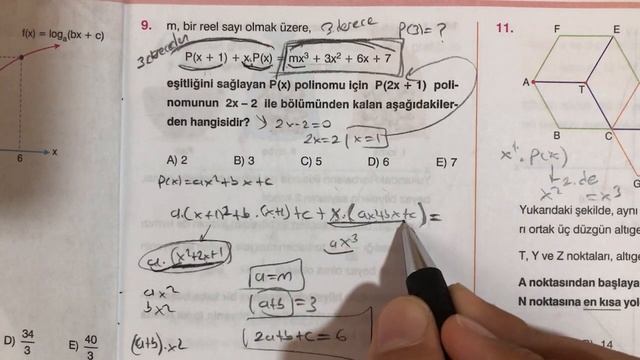 f(x) = logₐ(bx + c)
6
x
D) 34/3
E) 40/3
9. m, bir reel sayı olmak üzere,
3. derece
P(3) = ?
P(x + 1) + x.P(x) = mx³ + 3x² + 6x + 7
eşitliğini sağlayan P(x) polinomu için P(2x + 1) poli-
nomunun 2x – 2 ile bölümünden kalan aşağıdakiler-
den hangisidir?
2x-2=0
2x=2 x=1
A) 2 B) 3 C) 5 D) 6 E) 7
P(x)=ax²+bx+c
a.(x+1)²+b.(x+1)+c+x.(ax²+bx+c)=
a.(x²+2x+1)
ax³
ax²
bx²
(a+b).x²
a=m
a+b=3
2a+b+c=6
11.
F
E
A
T
B
C
G
x¹.P(x)
2.de
x² = x³
Yukarıdaki şekilde, ayni
rı ortak üç düzgün altıge
T, Y ve Z noktaları, altıge
A noktasından başlayan
N noktasına en kısa yol
14